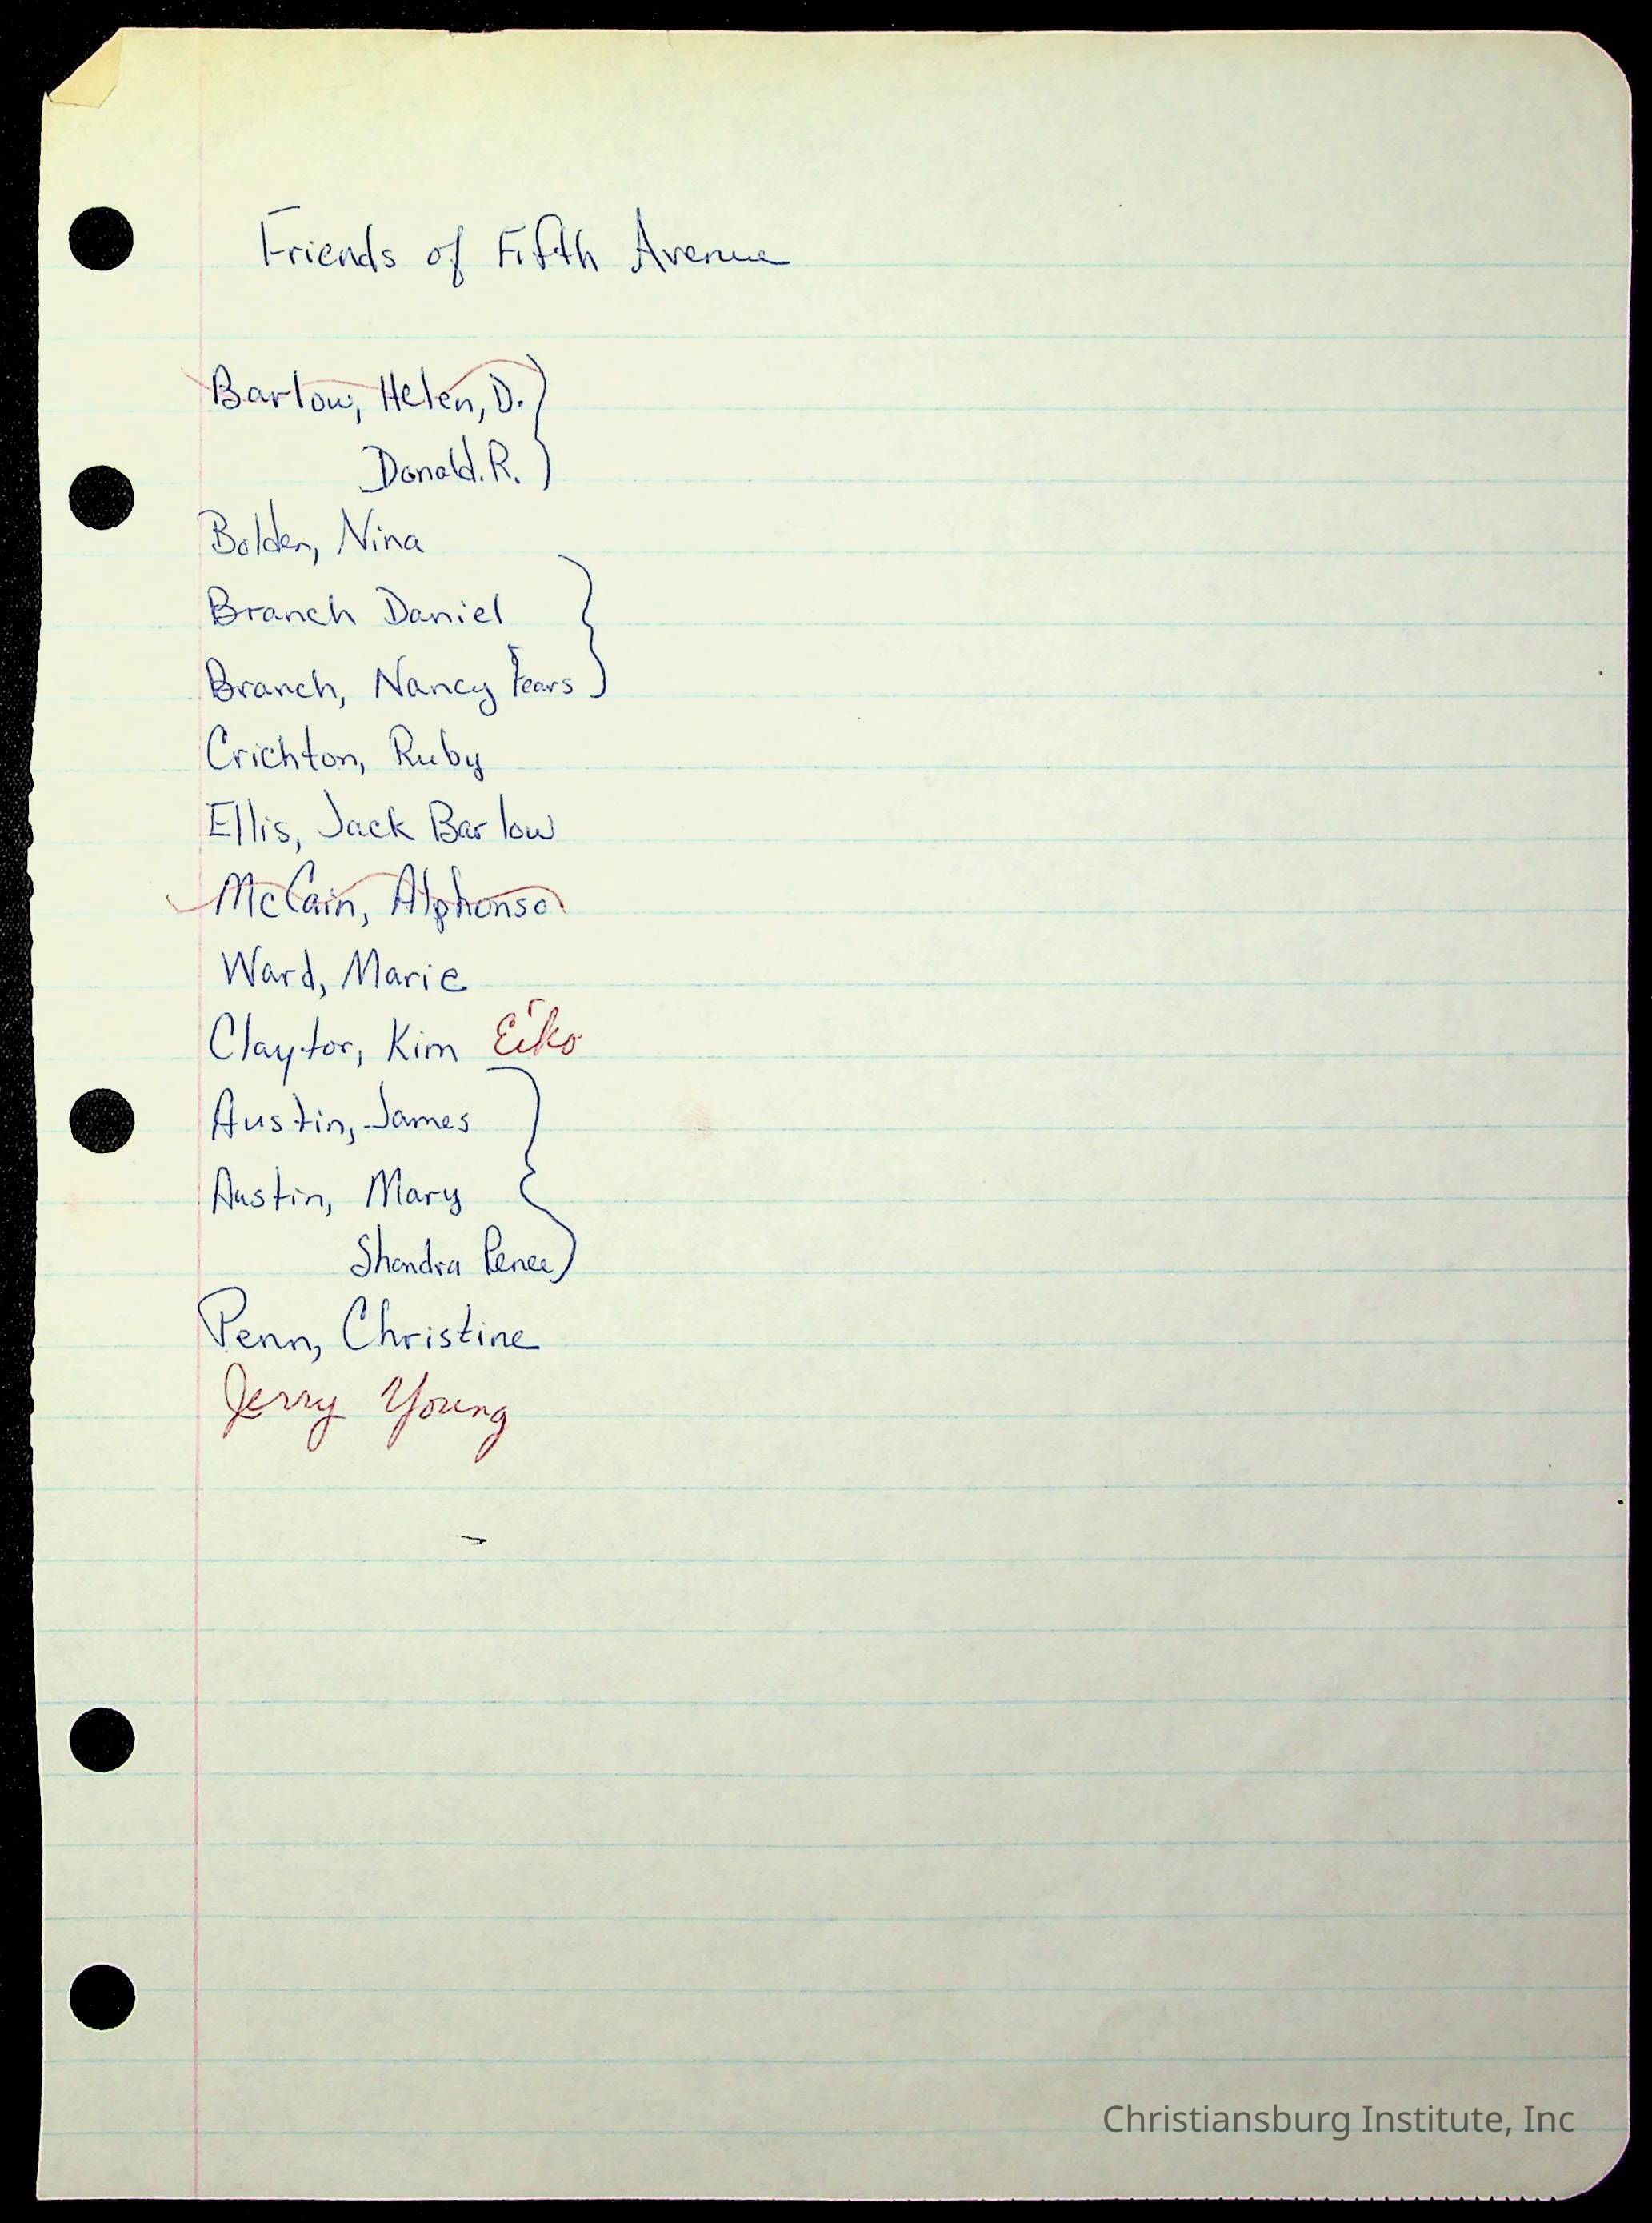 Friends of Fifth Avenue
Barlow, Helen, D.
Donald. R.
Bolden, Nina
Branch Daniel
Branch, Nancy Fears
Crichton, Ruby
Ellis, Jack Barlow
McCain, Alphonso
Ward, Marie
Claytor, Kim Eiko
Austin, James
Austin, Mary
Shandra Renee
Penn, Christine
Jerry Young
Christiansburg Institute, Inc